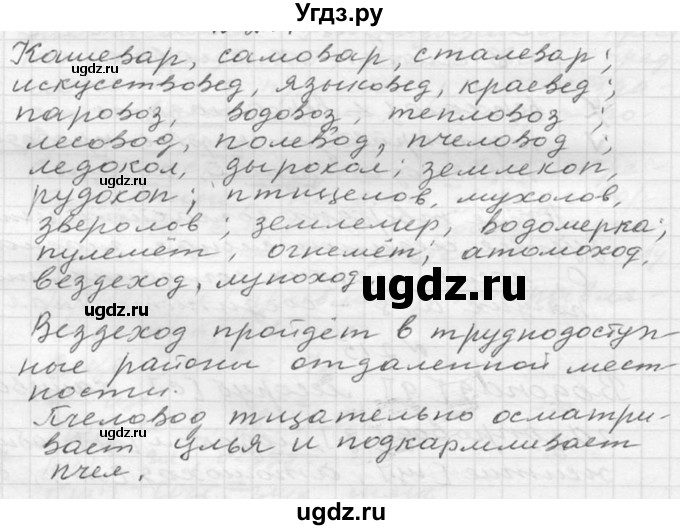 Угдз.ру
Кашевар, самовар, сталевар;
искусствовед, языковед, краевед;
паровоз, водовоз, тепловоз;
лесовод, полевод, пчеловод;
ледокол, дырокол; землекоп,
рудокоп; птицелов, мухолов,
зверолов; землемер, водомерка;
пулемёт, огнемёт; атомоход,
вездеход, луноход.
Вездеход пройдёт в труднодоступ-
ные районы отдаленной мест-
ности.
Пчеловод тщательно осматри-
вает улья и подкармливает
пчел.
ugdz.ru
ugdz.ru
ugdz.ru
ugdz.ru
ugdz.ru
ugdz.ru
ugdz.ru
ugdz.ru
ugdz.ru